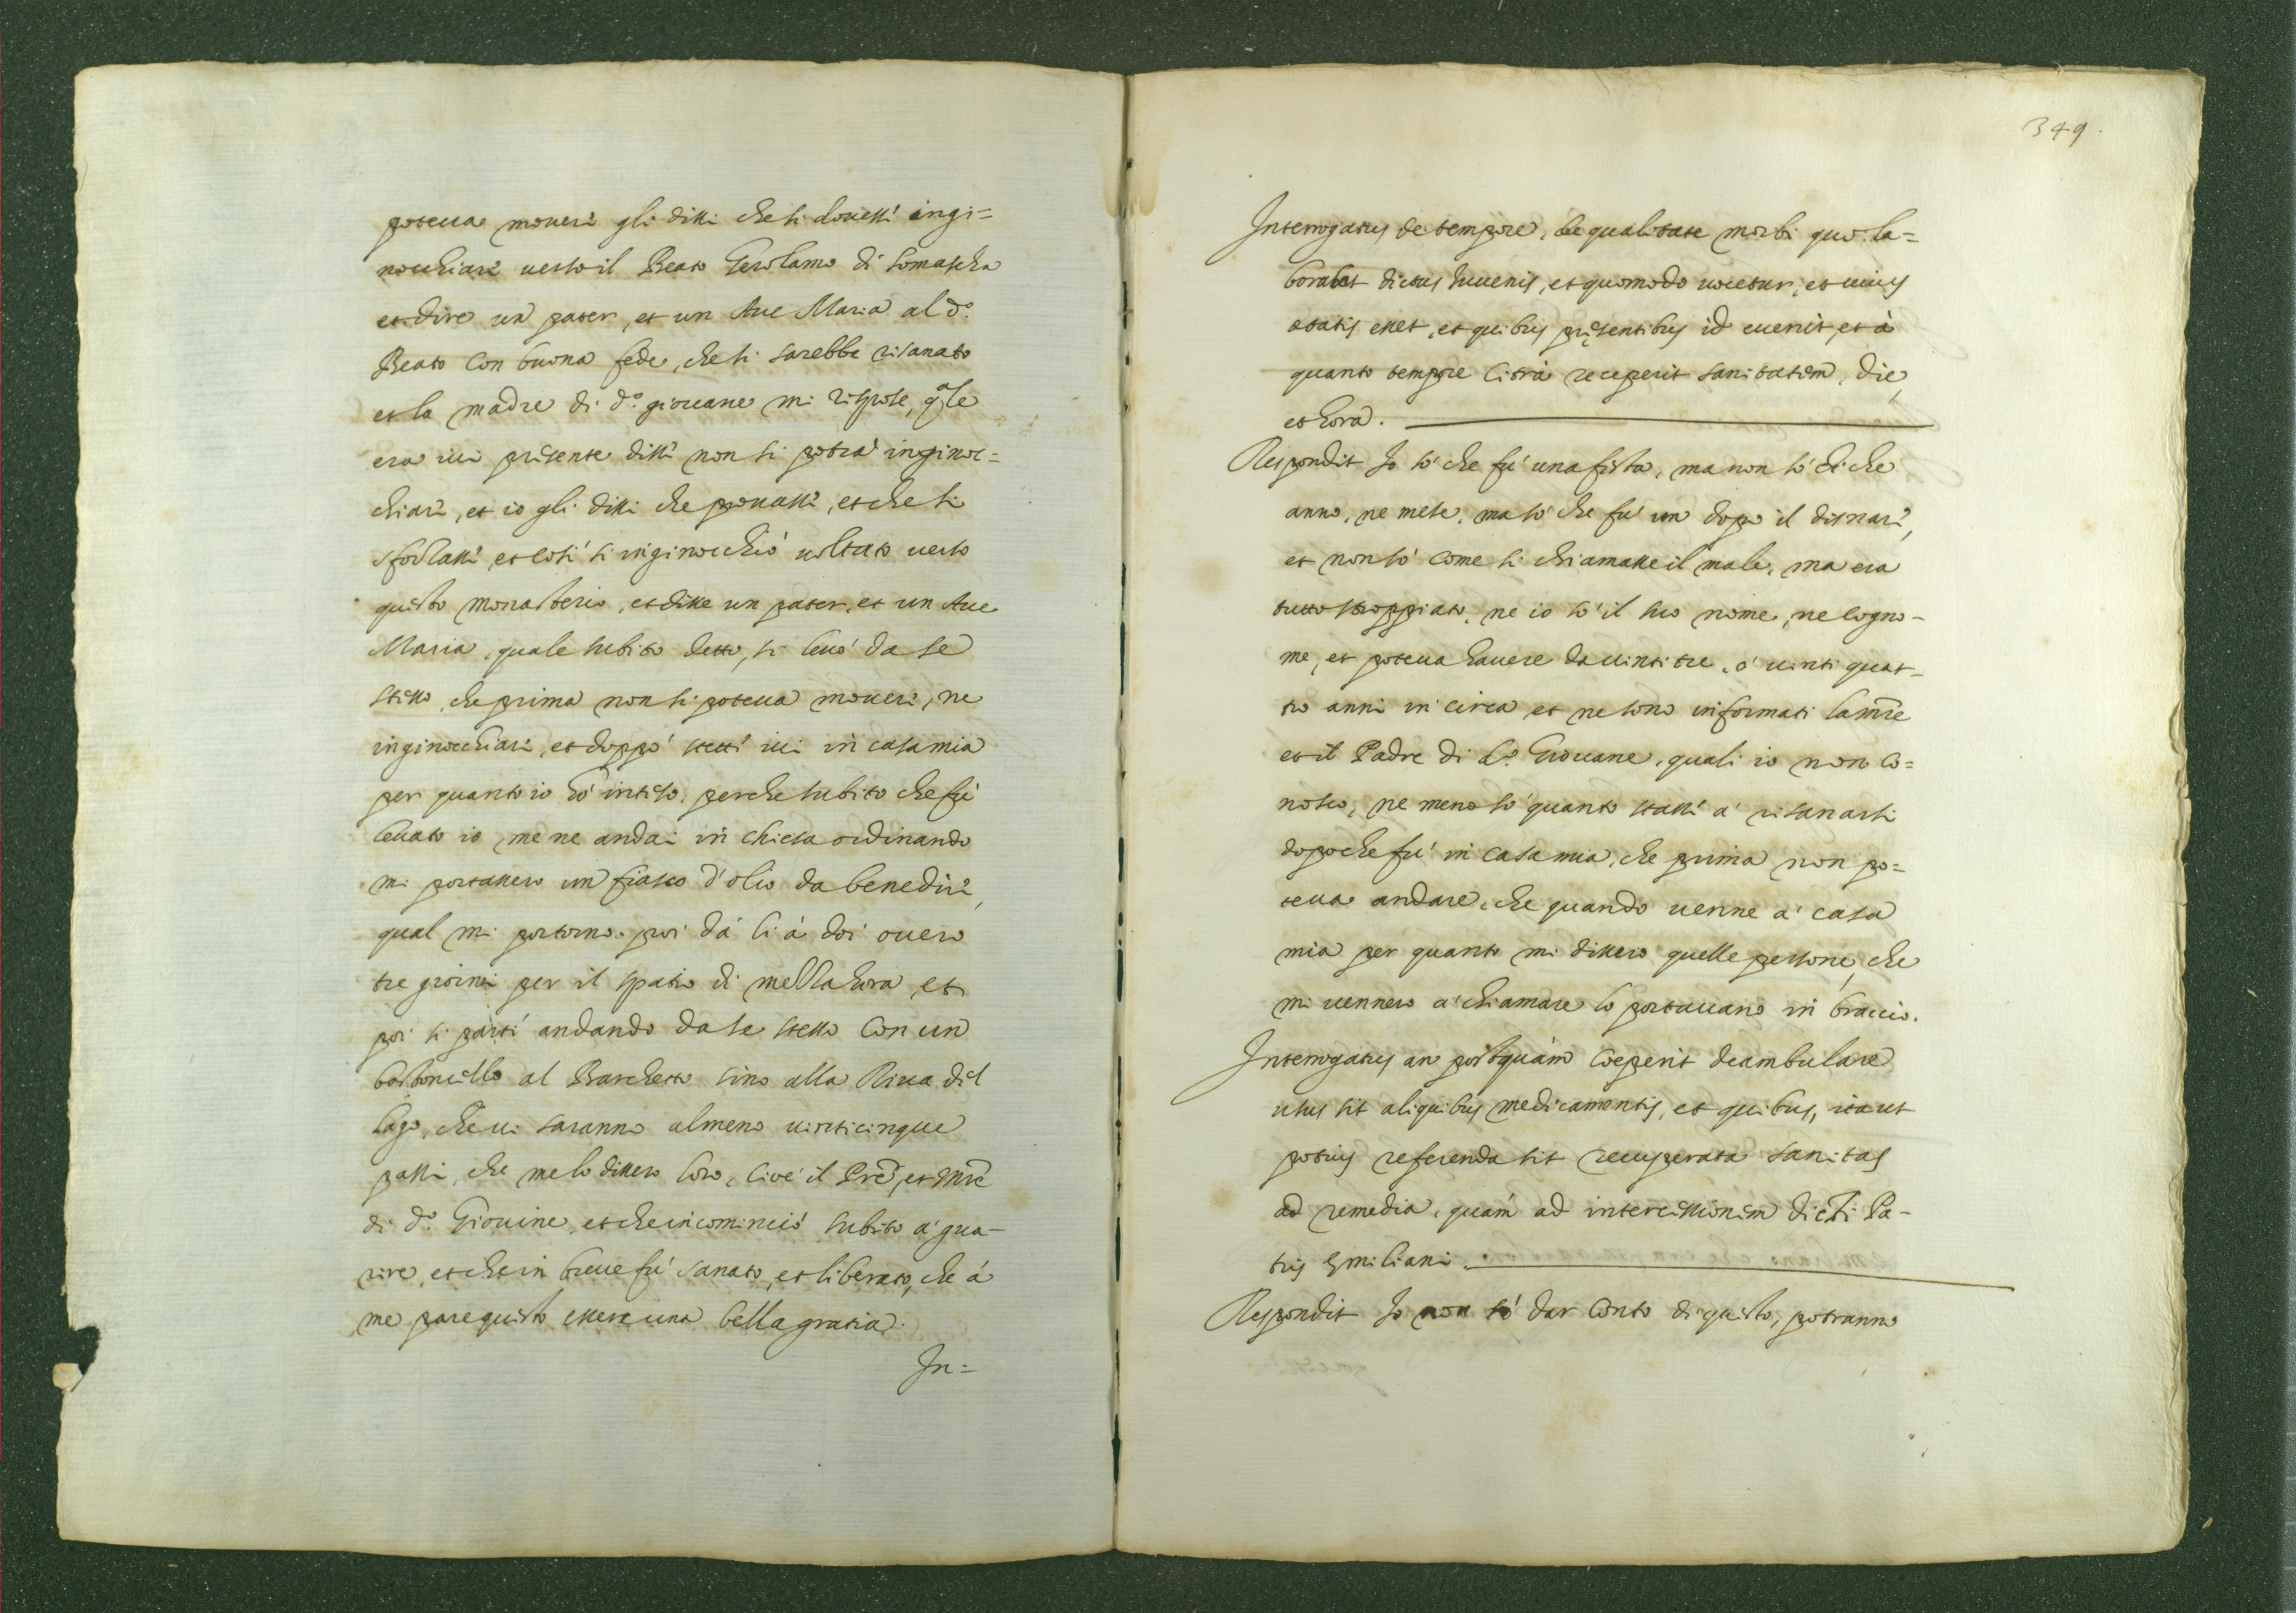 poteua moueri gli dissi che si douessi ingi=
nocchiari uerso il Beato Gerolamo di Somascha
et dire un pater, et un Aue Maria al d.º
Beato con buona fede, che si sarebbe risanato
et la madre di d.º giouane mi rispose, qle
era iui presente disse non si potrà inginoc=
chiari, et io gli dissi che prouassi, et che si
sforzassi, et cosi si inginocchiò uoltato uerso
questo monasterio, et disse un pater, et un Aue
Maria, quale subito detto, si leuò da se
stesso, che prima non si poteua moueri, ne
inginocchiari, et doppò stette iui in casa mia
per quanto io hò inteso, perche subito che fù
leuato io me ne andai in chiesa ordinando
mi portassero un fiasco d'olio da benediri,
qual mi portorno. poi dà li à doi ouero
tre giorni per il spatio di mezza hora, et
poi si partì andando da se stesso con un
bastoncello al Barchetto sino alla Riua del
lago, che ui saranno almeno uinticinque
passi, che me lo dissero loro, cioè il Pre, et Mre
di d.º Giouine, et che incominciò subito a gua-
rire, et che in breue fù sanato, et liberato, che à
me pare questo essere una bella gratia.
In=
349.
Interrogatus de tempore, de qualitate morbi quo la=
borabat dictus Iuuenis, et quomodo uocetur, et cuius
ętatis esset, et quibus pręsentibus id euenit, et à
quanto tempore citrà receperit sanitatem, die,
et hora.
Respondit Io sò che fù una festa, ma non sò di che
anno, ne mese, ma sò che fù un dopo il disnari,
et non sò come si chiamasse il male, ma era
tutto stroppiato, ne io sò il suo nome, ne cogno-
me, et poteua hauere da uinti tre, ò uinti quat-
tro anni in circa et ne sono informati la mre
et il Padre di d.º Giouane, quali io non co=
nosco, ne meno sò quanto stassi à risanarsi
dopo che fù in casa mia, che prima non po=
teua andare, che quando uenne a casa
mia per quanto mi dissero quelle persone, che
mi uennero a chiamare lo portauano in braccio.
Interrogatus an postquàm coeperit deambulare
usus sit aliquibus medicamentis, et quibus, ita ut
potius referenda sit recuperata sanitas
ad remedia, quàm ad intercessionem dicti Pa-
tris Ęmiliani.
Respondit Io non sò dar conto di questo, potranno